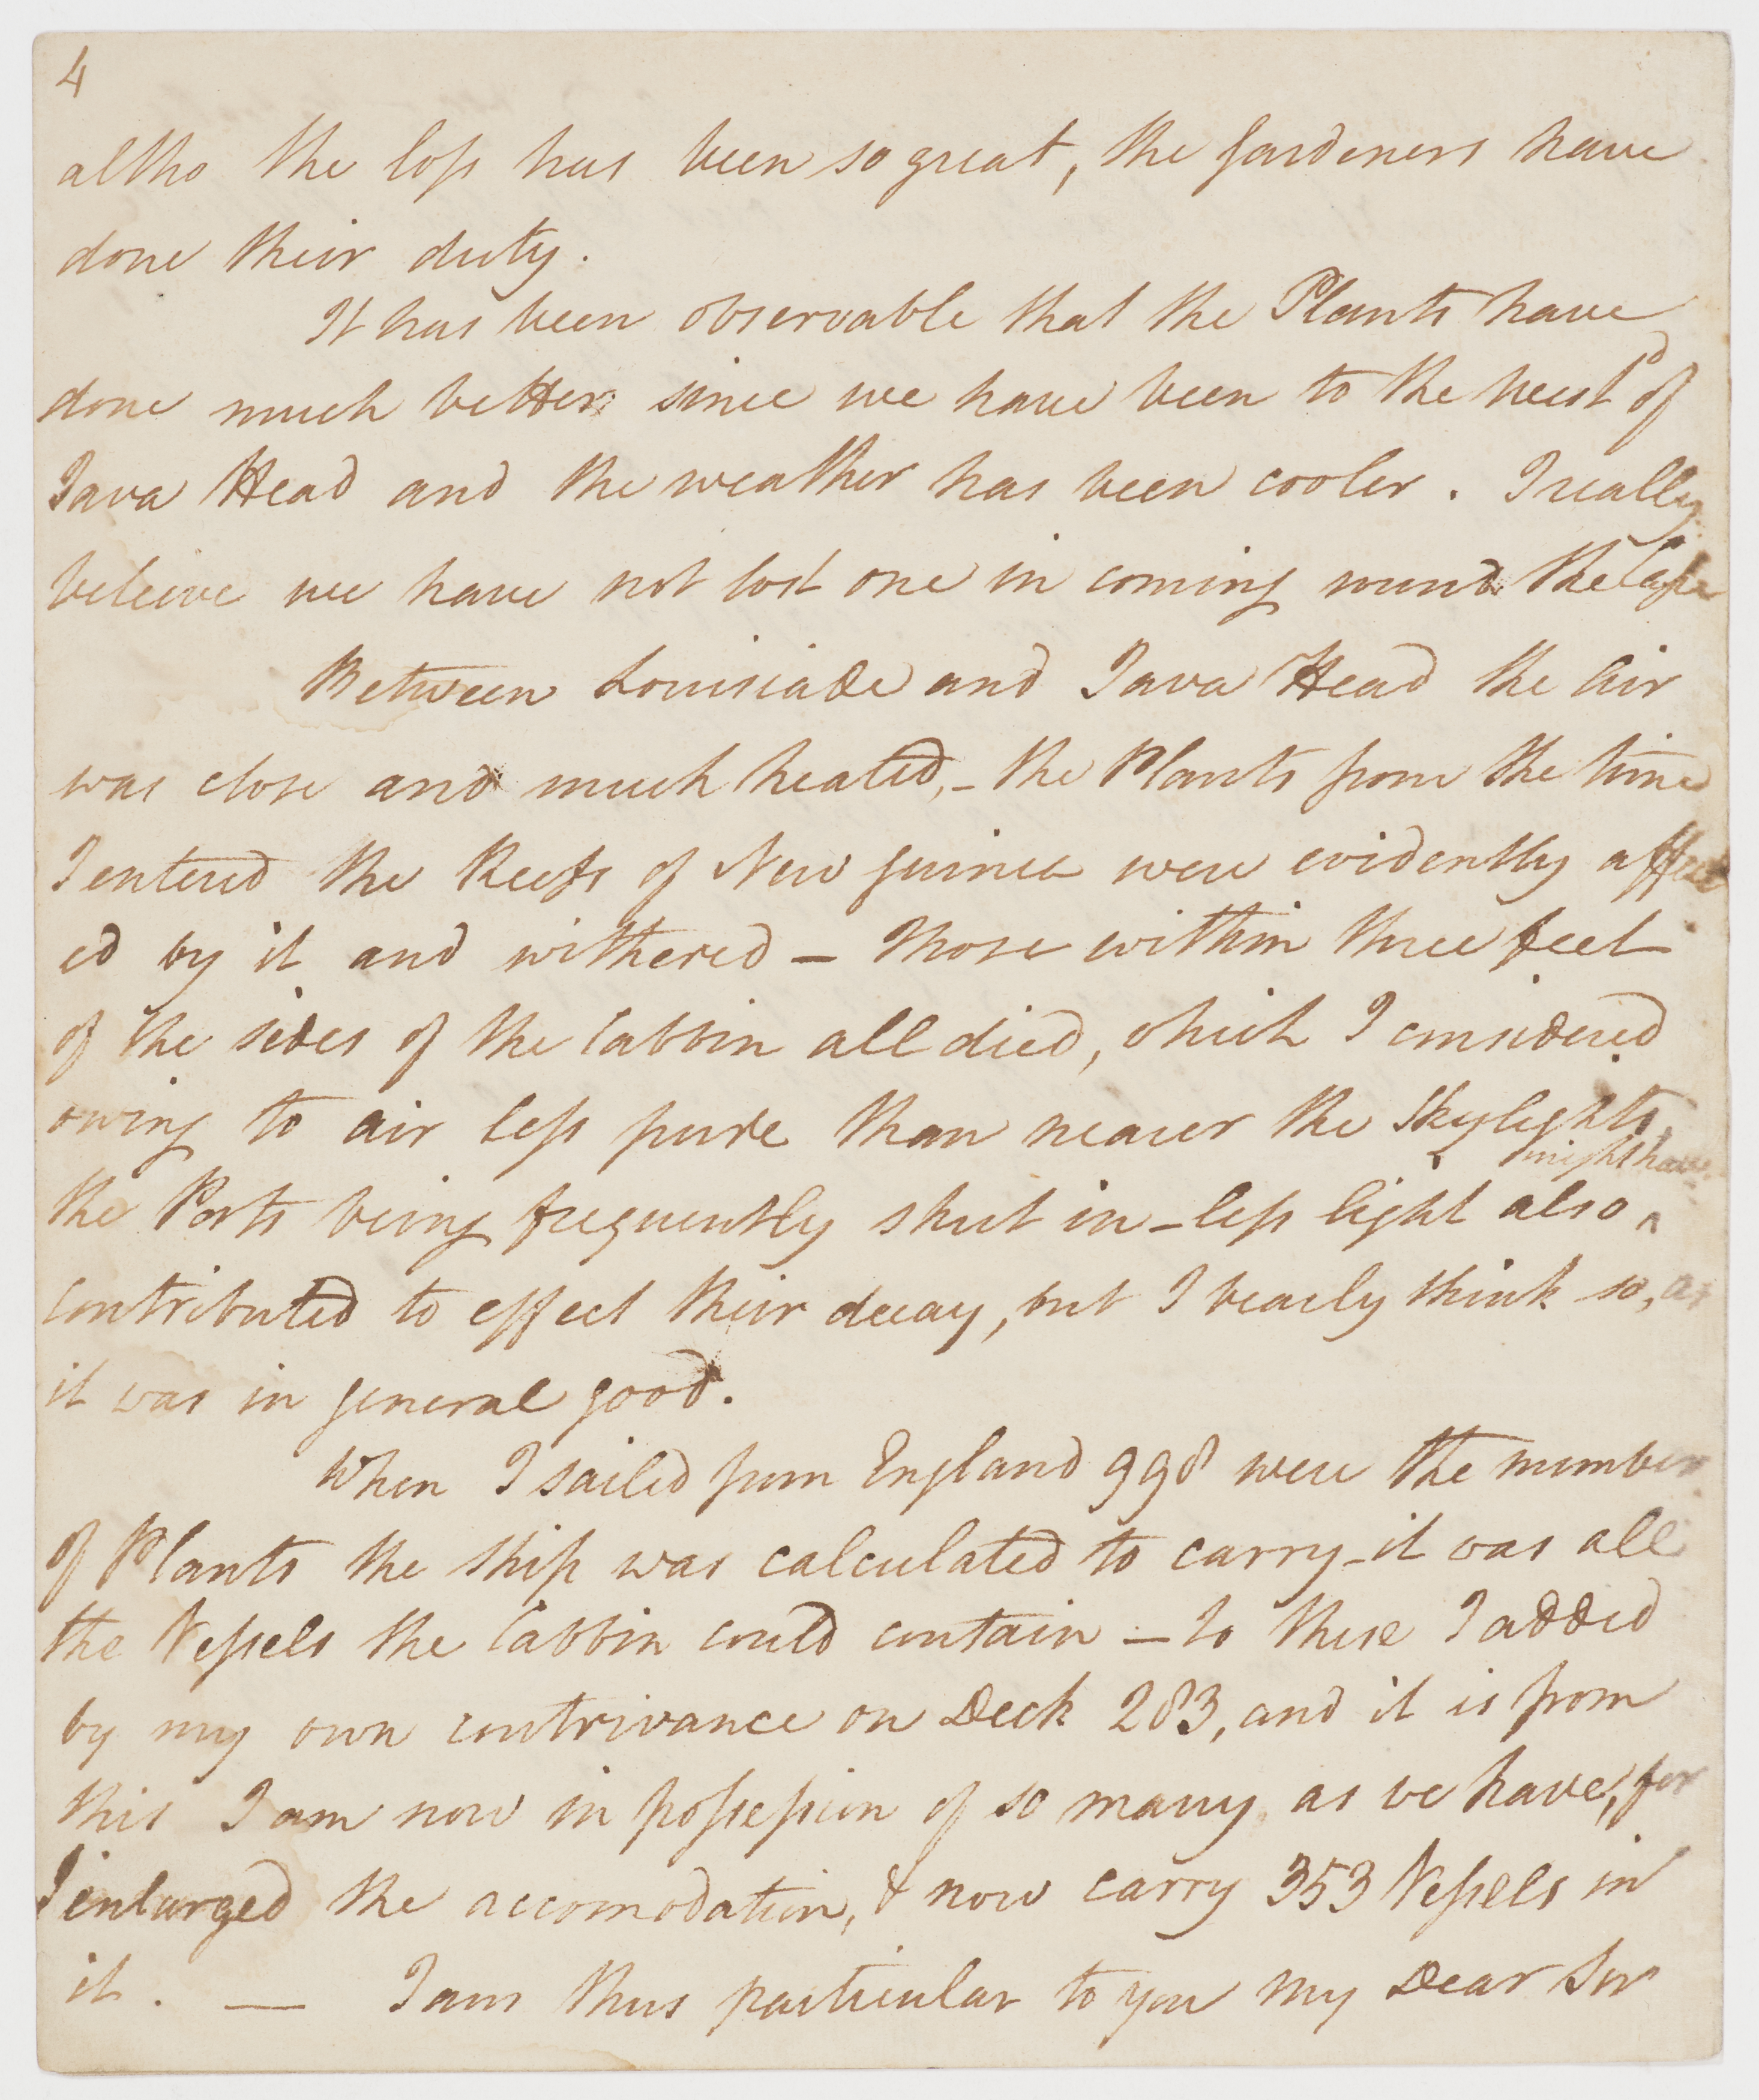 4
altho the loss has been so great, the Gardeners have
done their duty.
It has been observable that the Plants have
done much better since we have been to the West.d of
Java Head and the weather has been cooler. I really
beleive we have not lost one in coming round the Cape
Between Louisiade and Java Head the air
was close and much heated, – the Plants from the time
I entered the Reefs of New Guinea were evidently affect
ed by it and withered – those within three feet
of the sides of the Cabbin all died, which I considered
owing to air less pure than nearer the Skylights,
might have
the Ports being frequently shut in – less light also ^
contributed to effect their decay, but I bearly think so, as
it was in general good.
When I sailed from England 998 were the number
of Plants the Ship was calculated to carry – it was all
the Vessels the Cabbin could contain – to these I added
by my own contrivance on Deck 283, and it is from
this I am now in possession of so many as we have, for
I enlarged the accomodation, & now carry 353 Vessels in
it. — I am thus particular to you my Dear Sir